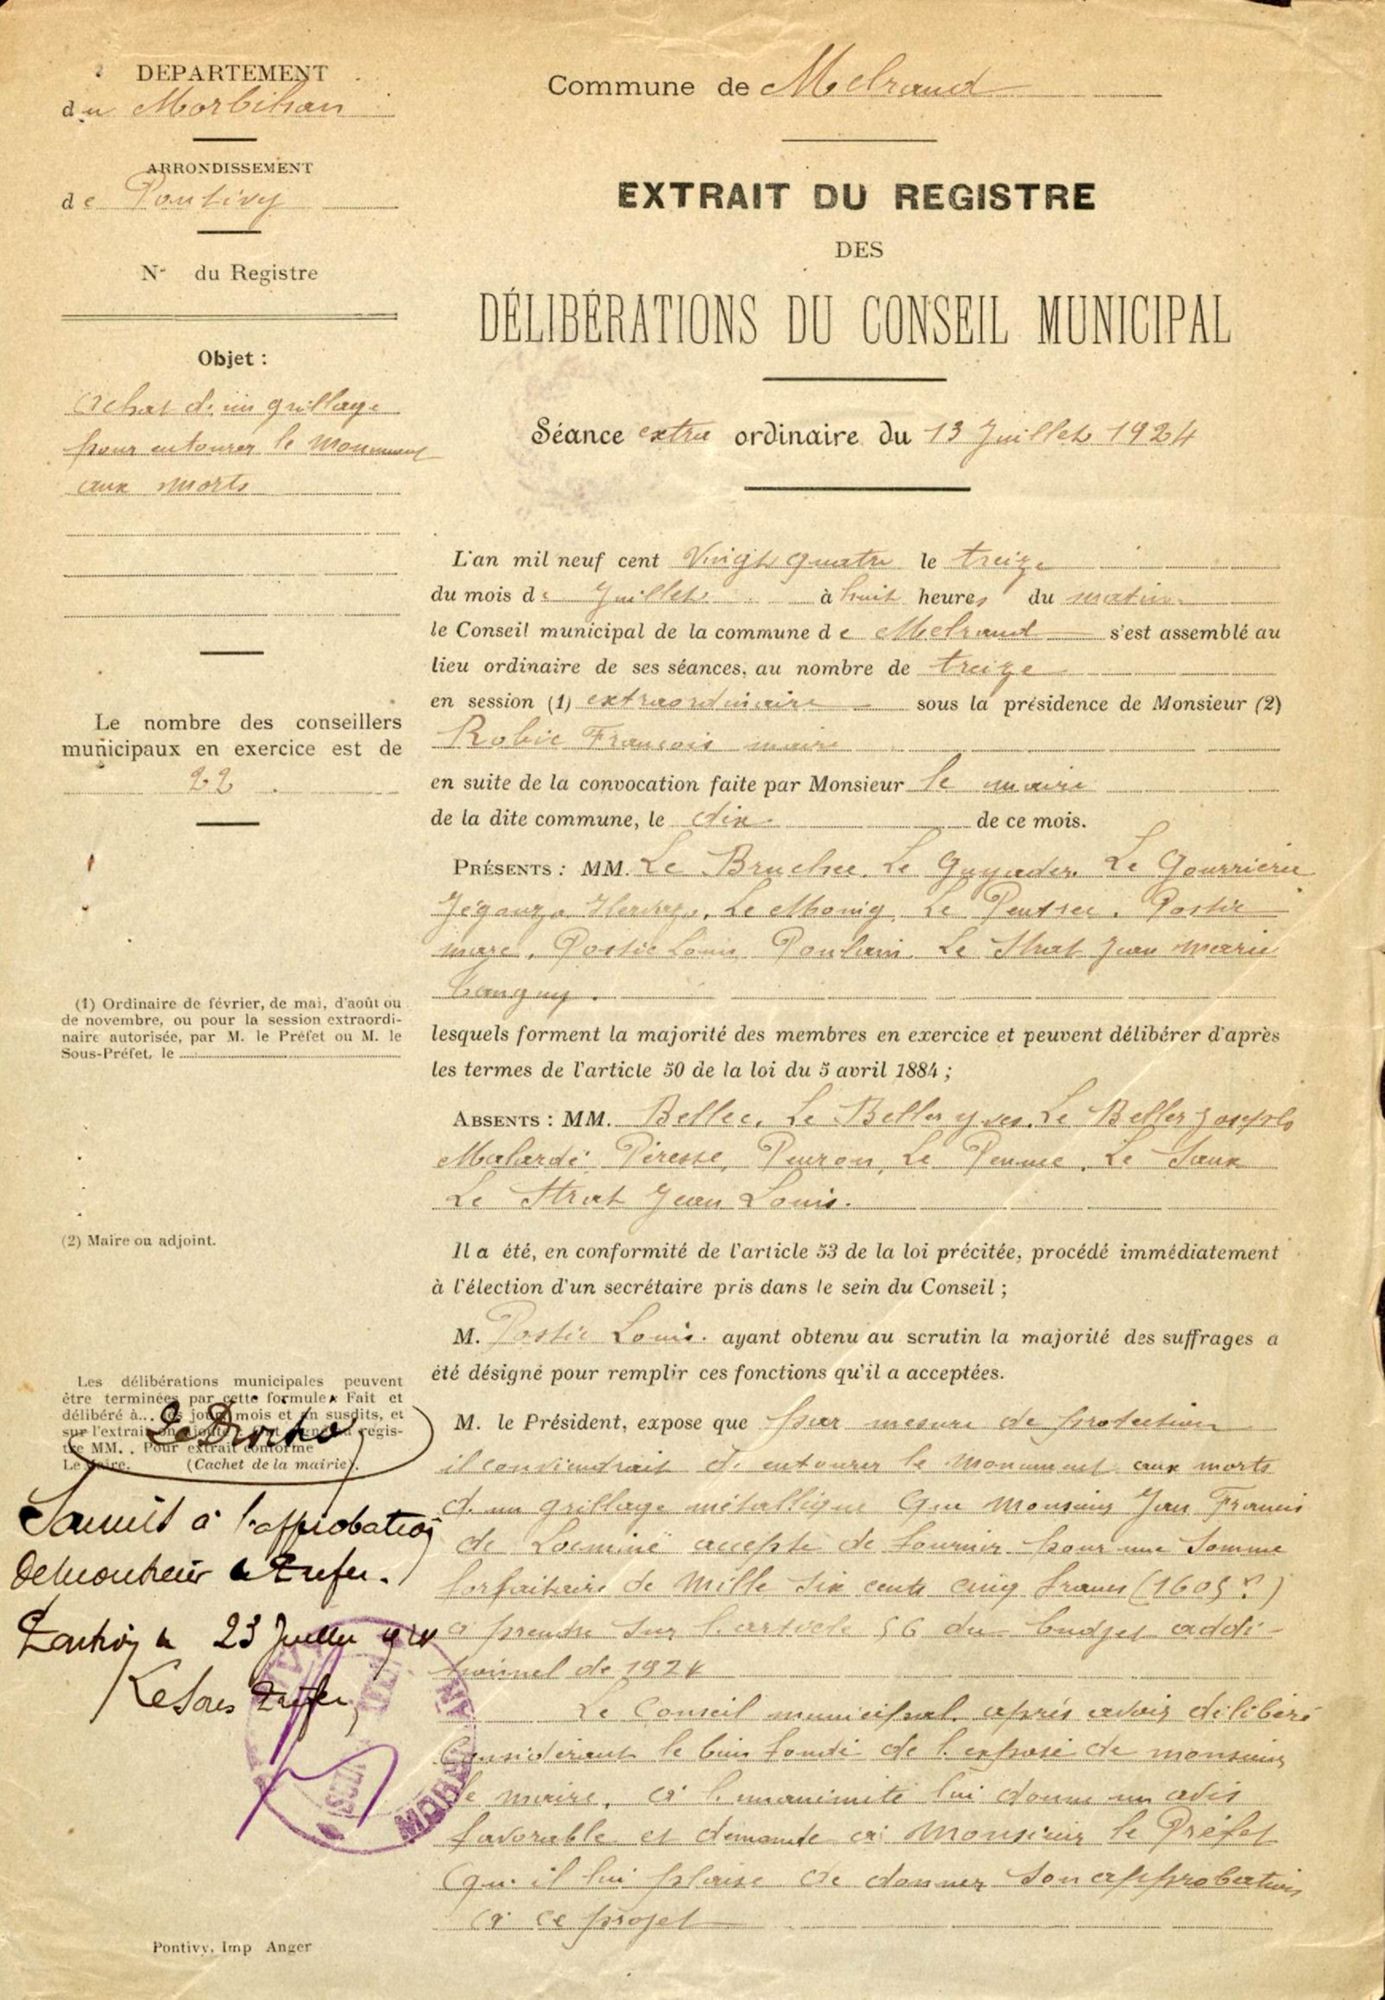 DEPARTEMENT
du Morbihan
ARRONDISSEMENT
de Pontivy
No du Registre
Objet :
Achat d'un grillage
pour entourer le monument
aux morts
Le nombre des conseillers
municipaux en exercice est de
22
(1) Ordinaire de février, de mai, d'août ou
de novembre, ou pour la session extraordi-
naire autorisée, par M. le Préfet ou M. le
Sous-Préfet, le
(2) Maire ou adjoint.
Les délibérations municipales peuvent
être terminées par cette formule : Fait et
délibéré à... les jour, mois et an susdits, et
sur l'extrait on ajoute : au regis-
tre MM. . Pour extrait conforme
Le Maire. (Cachet de la mairie).
Soumis à l'approbation
de Monsieur le Préfet.
Pontivy le 23 Juillet 1924
Le Sous Préfet,
MORBIHAN
Pontivy, Imp Anger
Commune de Melrand
EXTRAIT DU REGISTRE
DES
DÉLIBÉRATIONS DU CONSEIL MUNICIPAL
Séance extra ordinaire du 13 Juillet 1924
L'an mil neuf cent Vingt quatre le treize
du mois de Juillet à huit heures du matin
le Conseil municipal de la commune de Melrand s'est assemblé au
lieu ordinaire de ses séances, au nombre de treize
en session (1) extraordinaire sous la présidence de Monsieur (2)
Robic François maire
en suite de la convocation faite par Monsieur le maire
de la dite commune, le dix de ce mois.
PRÉSENTS : MM. Le Bruchec, Le Guyader, Le Gourrierec
Jégouzo, Le Mouig, Le Pentrec, Postic
marc, Postic Louis Poulain, Le Strat Jean marie
Tanguy.
lesquels forment la majorité des membres en exercice et peuvent délibérer d'après
les termes de l'article 50 de la loi du 5 avril 1884 ;
ABSENTS : MM. Bellec, Le Beller yves, Le Beller Joseph
Malardé, Péresse, Peuron, Le Penne, Le Saux
Le Strat Jean Louis.
Il a été, en conformité de l'article 53 de la loi précitée, procédé immédiatement
à l'élection d'un secrétaire pris dans le sein du Conseil ;
M. Postic Louis. ayant obtenu au scrutin la majorité des suffrages a
été désigné pour remplir ces fonctions qu'il a acceptées.
M. le Président, expose que par mesure de protection
il conviendrait d'entourer le monument aux morts
d'un grillage métallique que monsieur Jan Francis
de Locminé accepte de fournir pour une somme
forfaitaire de mille six cents cinq francs (1605 f)
à prendre sur l'article 56 du budget addi-
tionnel de 1924
Le Conseil municipal, après avoir délibéré
Considérant le bien fondé de l'exposé de monsieur
le maire, à l'unanimité lui donne un avis
favorable et demande à Monsieur le Préfet
qu'il lui plaise de donner son approbation
à ce projet